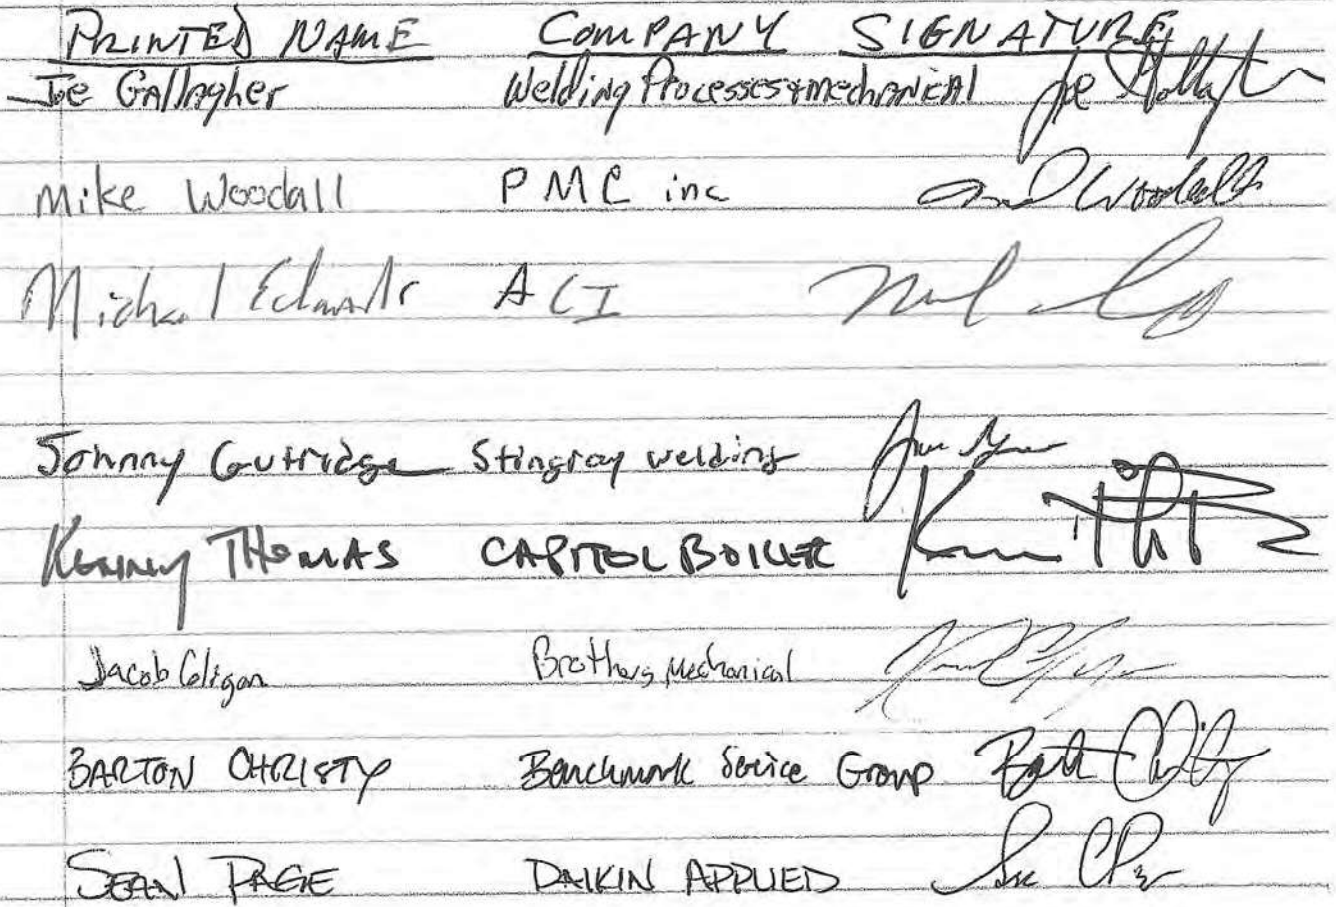 PRINTED NAME COMPANY SIGNATURE
Joe Gallagher Welding Processes & mechanical Joe Gallagher
Mike Woodall PMC inc Woodall
Michael Edwards ACI
Johnny Guttridge Stingray welding
Kenny THOMAS CAPITOL BOILER
Jacob Coligan Brothers Mechanical
BARTON CHRISTY Benchmark Service Group
SEAN PAGE DAIKIN APPLIED